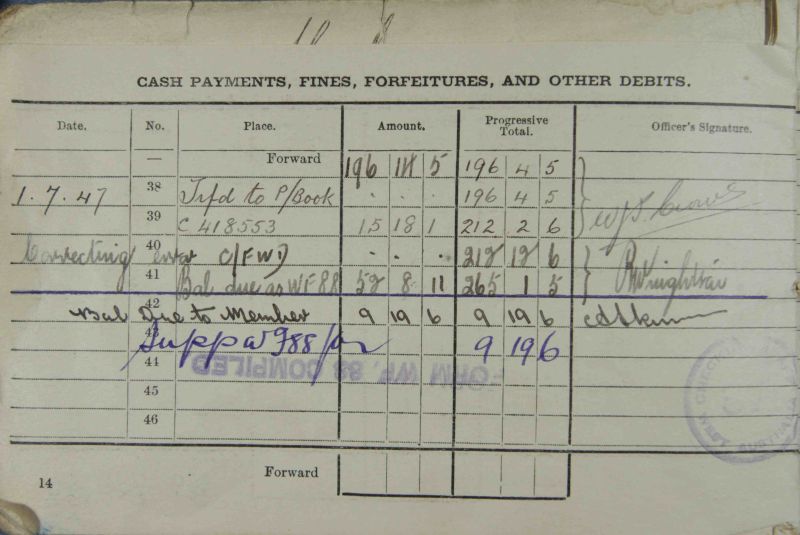 CASH PAYMENTS, FINES, FORFEITURES, AND OTHER DEBITS.
Date. No. Place. Amount. Progressive Total. Officer's Signature.
— Forward 196 5 196 4 5
1.7.47 38 Trfd to P/Book . . . 196 4 5
39 C 418553 15 18 1 212 2 6
Correcting error 40 C/FWD . . . 212 12 6
41 Bal due as WF88 52 8 11 265 1 5
42 Bal Due to Member 9 19 6 9 19 6
43 9 19 6
44 FORM WF. 88 COMPILED
45
46
14 Forward